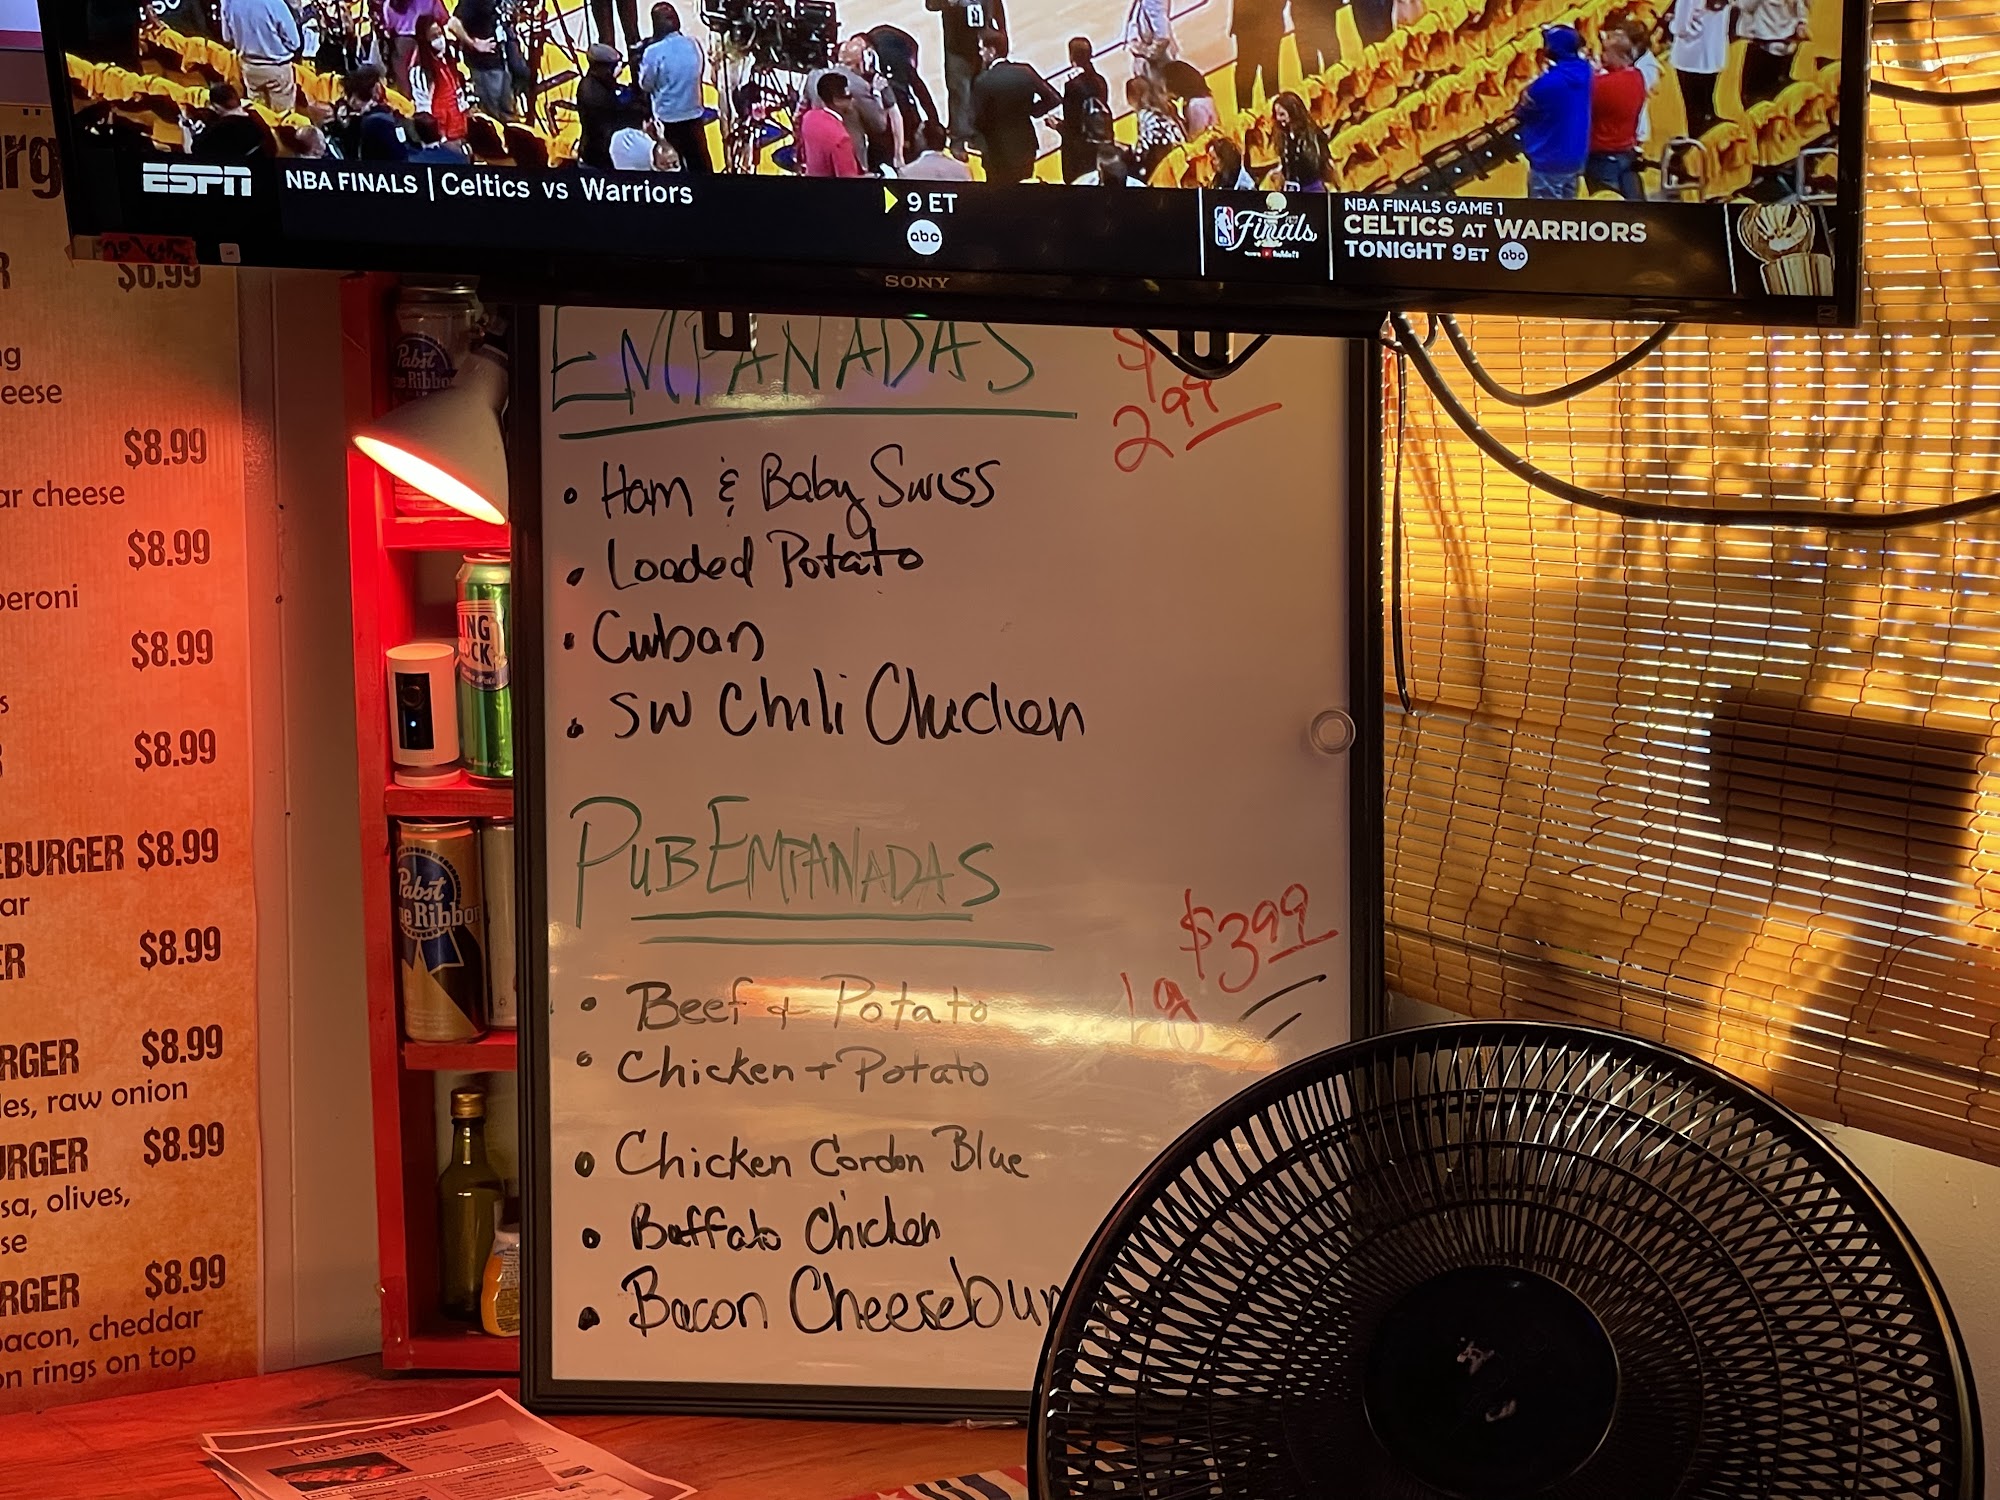 ESPN
NBA FINALS | Celtics vs Warriors
9 ET
abc
Finals
NBA FINALS GAME 1
CELTICS AT WARRIORS
TONIGHT 9ET abc
SONY
$6.99
eese
$8.99
ar cheese
$8.99
peroni
$8.99
$8.99
EBURGER $8.99
ar
ER $8.99
RGER $8.99
les, raw onion
URGER $8.99
sa, olives,
se
RGER $8.99
bacon, cheddar
on rings on top
Pabst
ue Ribbon
ING
OCK
Pabst
ue Ribbon
EMPANADAS $2.99
• Ham & Baby Swiss
• Loaded Potato
• Cuban
• SW Chili Chicken
PUB EMPANADAS
lg $3.99
• Beef & Potato
• Chicken + Potato
• Chicken Cordon Blue
• Buffalo Chicken
• Bacon Cheesebur
Leo's Bar-B-Que